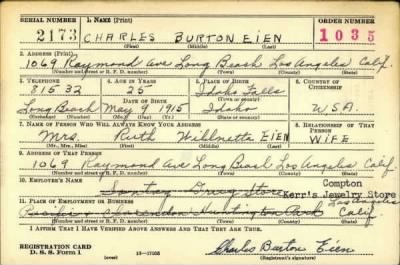 SERIAL NUMBER 1. NAME (Print) ORDER NUMBER
2173 CHARLES BURTON EIEN 1035
(First) (Middle) (Last)
2. ADDRESS (Print)
1069 Raymond Ave Long Beach Los Angeles Calif.
(Number and street or R. F. D. number) (Town) (County) (State)
3. TELEPHONE 4. AGE IN YEARS 5. PLACE OF BIRTH 6. COUNTRY OF CITIZENSHIP
81532 25 Idaho Falls
DATE OF BIRTH (Town or county)
Long Beach May 9 1915 Idaho USA.
(Exchange) (Number) (Mo.) (Day) (Yr.) (State or country)
7. NAME OF PERSON WHO WILL ALWAYS KNOW YOUR ADDRESS 8. RELATIONSHIP OF THAT PERSON
Mrs. Ruth Willnetta EIEN WIFE
(Mr., Mrs., Miss) (First) (Middle) (Last)
9. ADDRESS OF THAT PERSON
1069 Raymond Ave Long Beach Los Angeles Calif.
(Number and street or R. F. D. number) (Town) (County) (State)
10. EMPLOYER'S NAME Compton
Drug Store Kerr's Jewelry Store
11. PLACE OF EMPLOYMENT OR BUSINESS Los Angeles
Pacific & Clarendon Huntington Park Calif.
(Number and street or R. F. D. number) (Town) (County) (State)
I AFFIRM THAT I HAVE VERIFIED ABOVE ANSWERS AND THAT THEY ARE TRUE.
REGISTRATION CARD
D. S. S. Form 1 (over) 16—17105 Charles Burton Eien
(Registrant's signature)